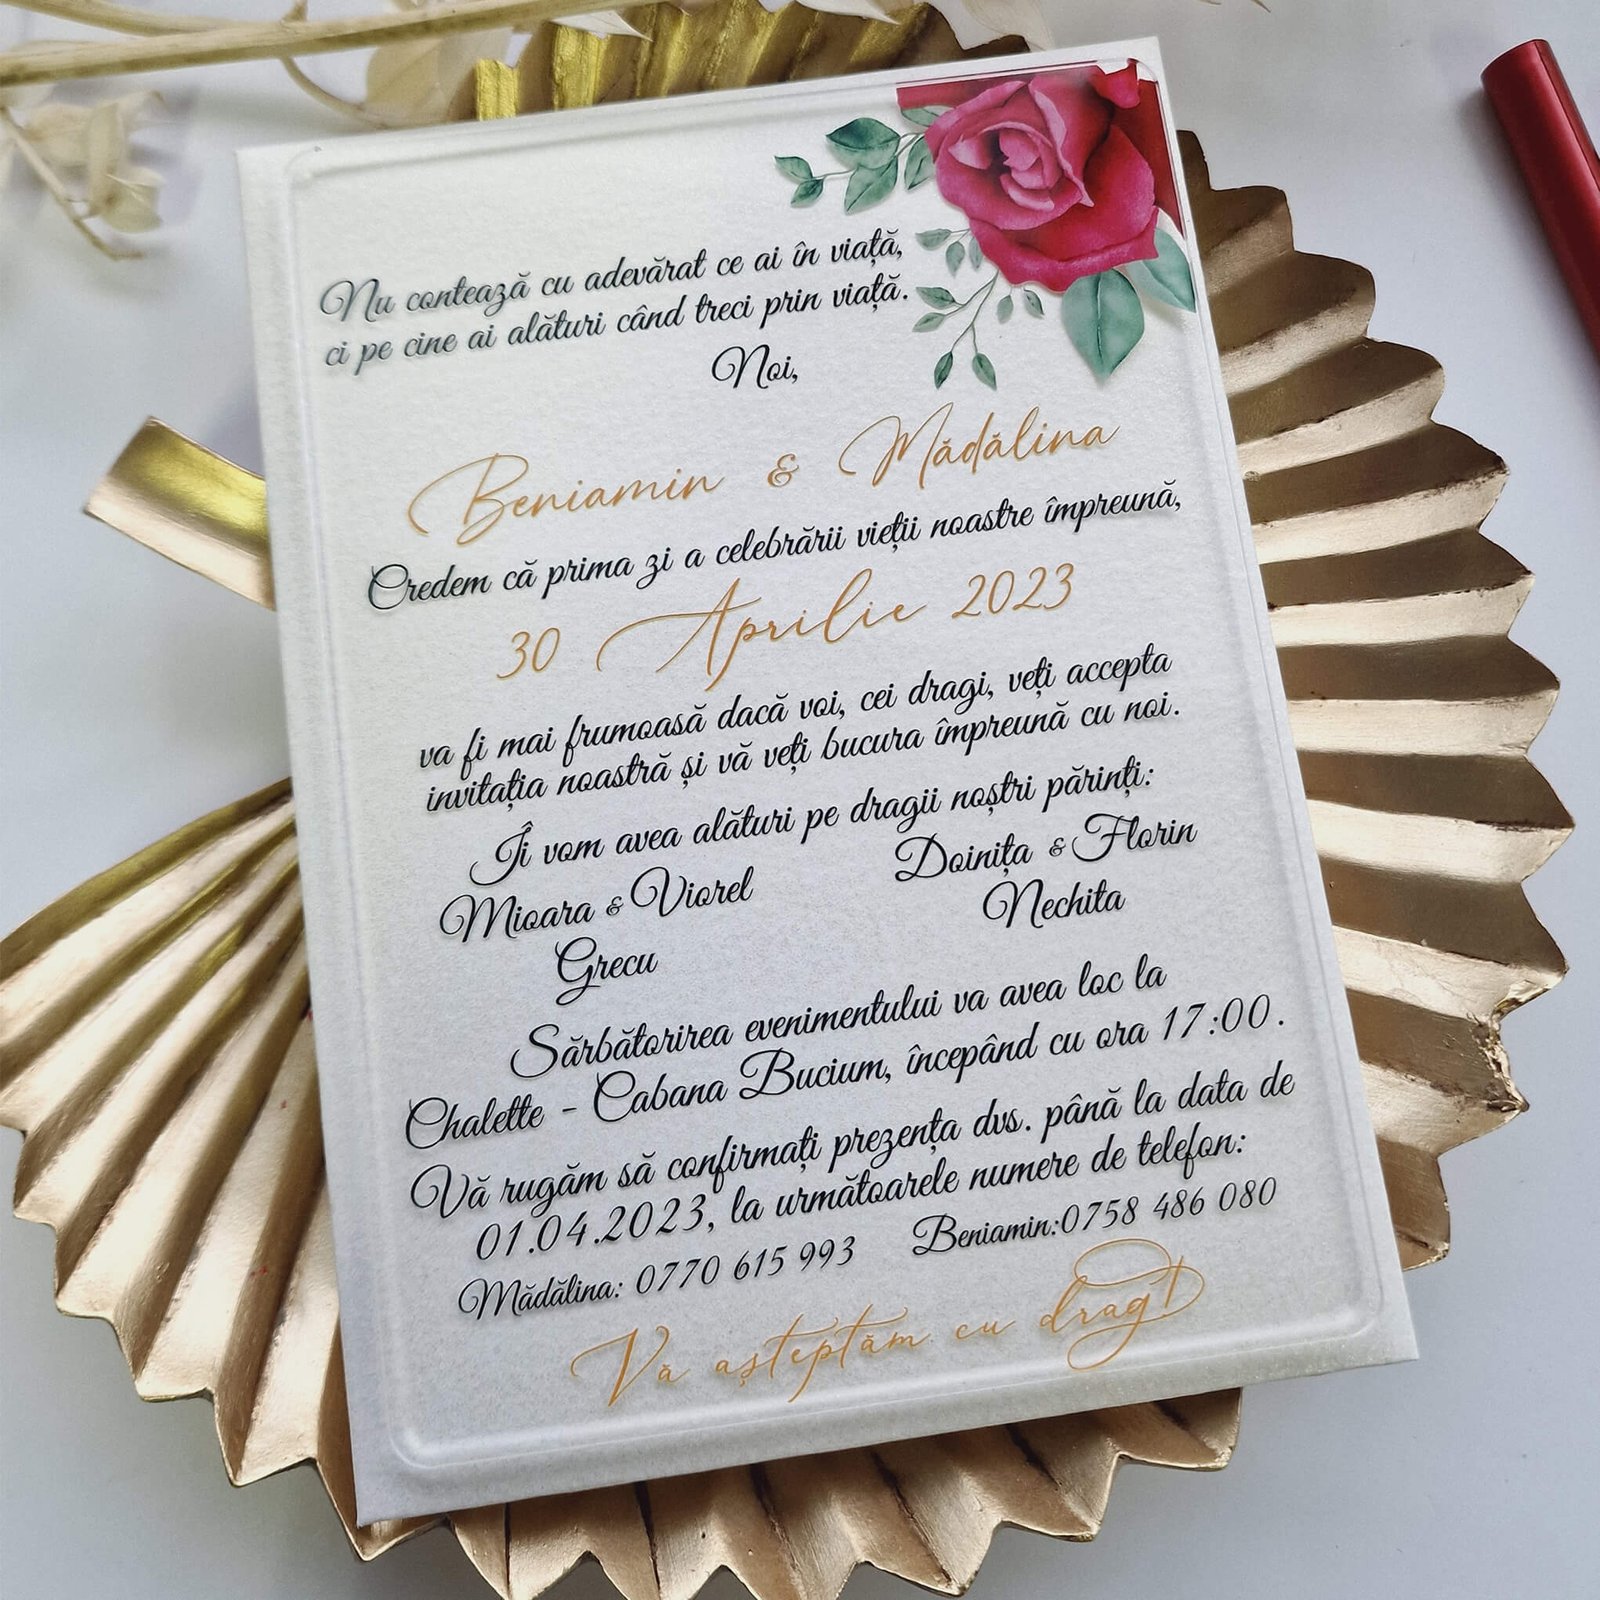 Nu contează cu adevărat ce ai în viață,
ci pe cine ai alături când treci prin viață.
Noi,
Beniamin & Mădălina
Credem că prima zi a celebrării vieții noastre împreună,
30 Aprilie 2023
va fi mai frumoasă dacă voi, cei dragi, veți accepta
invitația noastră și vă veți bucura împreună cu noi.
Îi vom avea alături pe dragii noștri părinți:
Mioara & Viorel
Grecu
Doinița & Florin
Nechita
Sărbătorirea evenimentului va avea loc la
Chalette - Cabana Bucium, începând cu ora 17:00.
Vă rugăm să confirmați prezența dvs. până la data de
01.04.2023, la următoarele numere de telefon:
Mădălina: 0770 615 993 Beniamin:0758 486 080
Vă așteptăm cu drag!